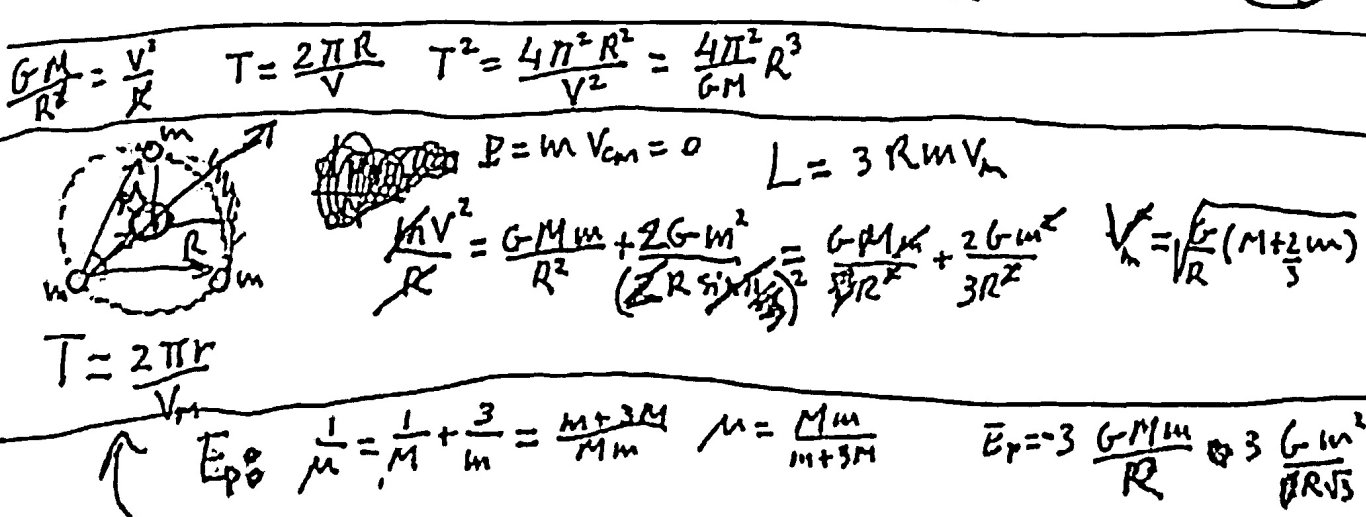 GM/R² = V²/R T = 2πR/V T² = 4π²R²/V² = 4π²/GM R³
m m m R
P = m V_CM = 0 L = 3 R m V_m
mV²/R = GMm/R² + 2Gm²/(2R sin)² = GMm/R² + 2Gm²/3R² V_m = √(G/R (M + 2/3 m))
T = 2πr/V_M
E_p: 1/μ = 1/M + 3/m = m+3M/Mm μ = Mm/m+3M E_p = -3 GMm/R 3 Gm²/R√3